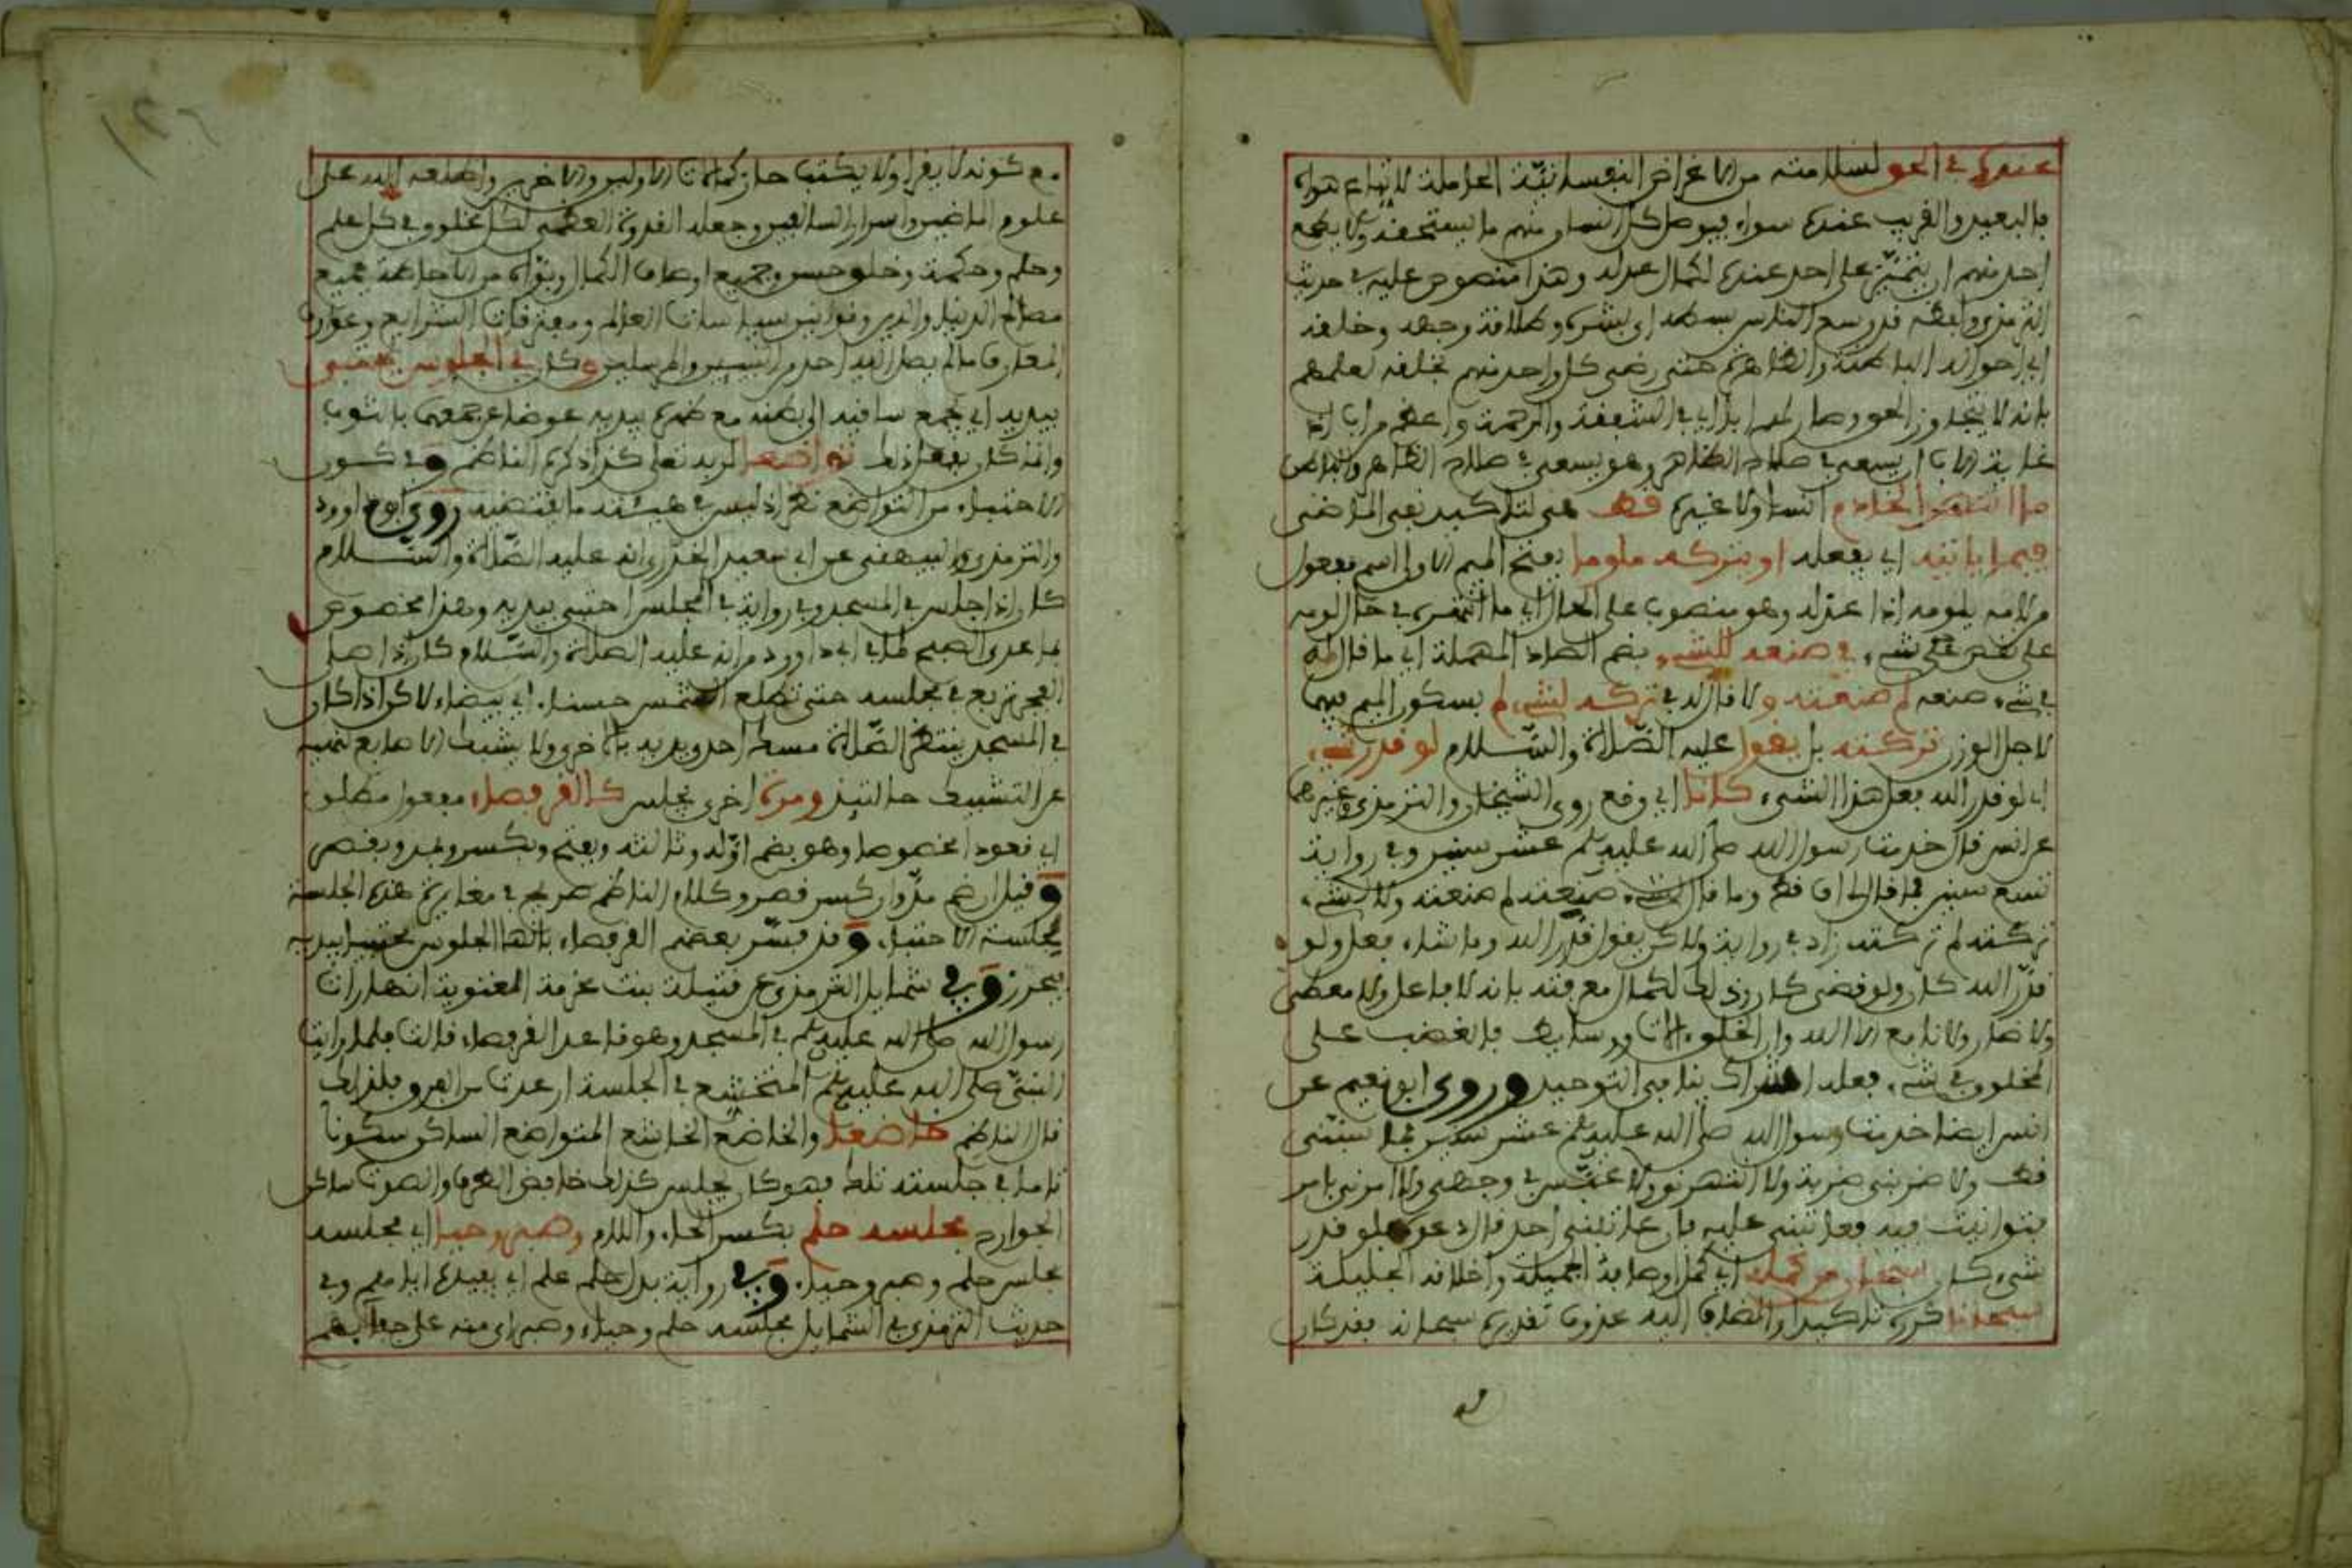 عنده في الحق لسلامته من الاغراض النفسانية الحاملة لاتباع هواه
فالبعيد والقريب عنده سواء فيوصل كل انسان منهم ما يستحقه ولا يطمع
احد منهم ان يتميز على احد عنده لكمال عدله وهذا منصوص عليه في حديث
الترمذي ولفظه قد وسع الناس بسطه اي بشره وطلاقة وجهه وخلقه
اي احواله الباطنة والظاهرة حتى رضي كل واحد منهم بخلقه لعلمهم
بانه لا يتجاوز الحق وصار لهم ابا اي في الشفقة والرحمة واعظم من اب اذ
غاية الاب ان يسعى في صلاح الظاهر وهو يسعى في صلاح الظاهر والباطن
ما انتهر الخادم انسا ولا غيره قط هي لتاكيد نفي الماضي
فيما ياتيه اي يفعله او يتركه ملوما بفتح الميم الاولى اسم مفعول
من لامه يلومه اذا عذله وهو منصوب على الحال اي ما انتهره في حال لومه
على شيء في صنعه للشيء بضم الصاد المهملة اي ما قال له
في شيء صنعه لم صنعته ولا قال له في تركه لشيء لم بسكون الميم فيهما
لاجل الوزن تركته بل يقول عليه الصلاة والسلام لو قدر شيء
اي لو قدر الله فعل هذا الشيء كانا اي وقع روى الشيخان والترمذي وغيرهم
عن انس قال خدمت رسول الله صلى الله عليه وسلم عشر سنين وفي رواية
تسع سنين فما قال لي اف قط وما قال لشيء صنعته لم صنعته ولا لشيء
تركته لم تركته زاد في رواية ولاكن يقول قدر الله وما شاء فعل ولو
قدر الله كان ولو قضى كان وذلك لكمال معرفته بانه لا فاعل ولا معطي
ولا ضار ولا نافع الا الله وان الخلق الات ووسايط فالغضب على
المخلوق في شيء فعله اشراك ينافي التوحيد وروى ابو نعيم عن
انس ايضا خدمت رسول الله صلى الله عليه وسلم عشر سنين فما سبني
قط ولا ضربني ضربة ولا انتهرني ولا عبس في وجهي ولا امرني بامر
فتوانيت فيه فعاتبني عليه فان عاتبني احد قال دعوه فلو قدر
شيء كان سبحان من كمله اي كمل اوصافه الجميلة واخلاقه الجليلة
سبحانا كرره تاكيدا والمضاف اليه محذوف تقديره سبحانه فقد كان
مع كونه لا يقرا ولا يكتب حاز كمالات الاولين والاخرين واطلعه الله على
علوم الماضين واسرار السالفين وجعله القدوة العظمى لكل مخلوق في كل علم
وحلم وحكمة وخلق حسن وجميع اوصاف الكمال وبوأه من الاحاطة بجميع
مصالح الدنيا والدين وقوانين سياسات العالم ومعرفات الشرايع وعوارف
المعارف ما لم يصل اليه احد من النبيين والمرسلين وكان في الجلوس يحتبي
بيديه اي يجمع ساقيه الى بطنه مع ظهره بيديه عوضا عن جمعهما بالثوب
وانه كان يفعل ذلك تواضعا لربه تعالى كذا ذكره الناظم وفي كون
الاحتباء من التواضع نظر اذ ليس في هيئته ما يقتضيه روى ابو داوود
والترمذي والبيهقي عن ابي سعيد الخدري انه عليه الصلاة والسلام
كان اذا جلس في المسجد وفي رواية في المجلس احتبى بيديه وهذا مخصوص
بما عدى الصبح لما في ابي داوود من انه عليه الصلاة والسلام كان اذا صلى
الفجر تربع في مجلسه حتى تطلع الشمس حسناء اي بيضاء لاكن اذا كان
في المسجد ينتظر الصلاة مسك احد يديه بالاخرى ولا يشبك الاصابع نهيه
عن التشبيك حالتيذ ومرة اخرى يجلس كالقرفصاء مفعول مطلق
اي قعودا مخصوصا وهو بضم اوله وثالثه وبفتح وبكسر ويمد ويقصر
وقيل ان ضم مد وان كسر قصر وكلام الناظم صريح في مغايرة هذه الجلسة
لجلسة الاحتباء وقد فسر بعضهم القرفصاء بانها الجلوس محتبيا بيديه
فيحرر وفي شمايل الترمذي عن قيلة بنت مخرمة انها رات
رسول الله صلى الله عليه وسلم في المسجد وهو قاعد القرفصاء قالت فلما رايت
النبي صلى الله عليه وسلم المتخشع في الجلسة ارعدت من الفرق فلذلك
قال الناظم خاضعا والخاضع الخاشع المتواضع الساكن سكونا
تاما في جلسته تلك فهو كان يجلس كذلك خافض الطرف والصوت ساكن
الجوارح مجلسه حلم بكسر الحاء واللام وصبر وحيا اي مجلسه
مجلس حلم وصبر وحياء وفي رواية بدل حلم علم اي يفيده اياهم وفي
حديث الترمذي في الشمايل مجلسه حلم وحياء وصبر اي منه على جفائهم